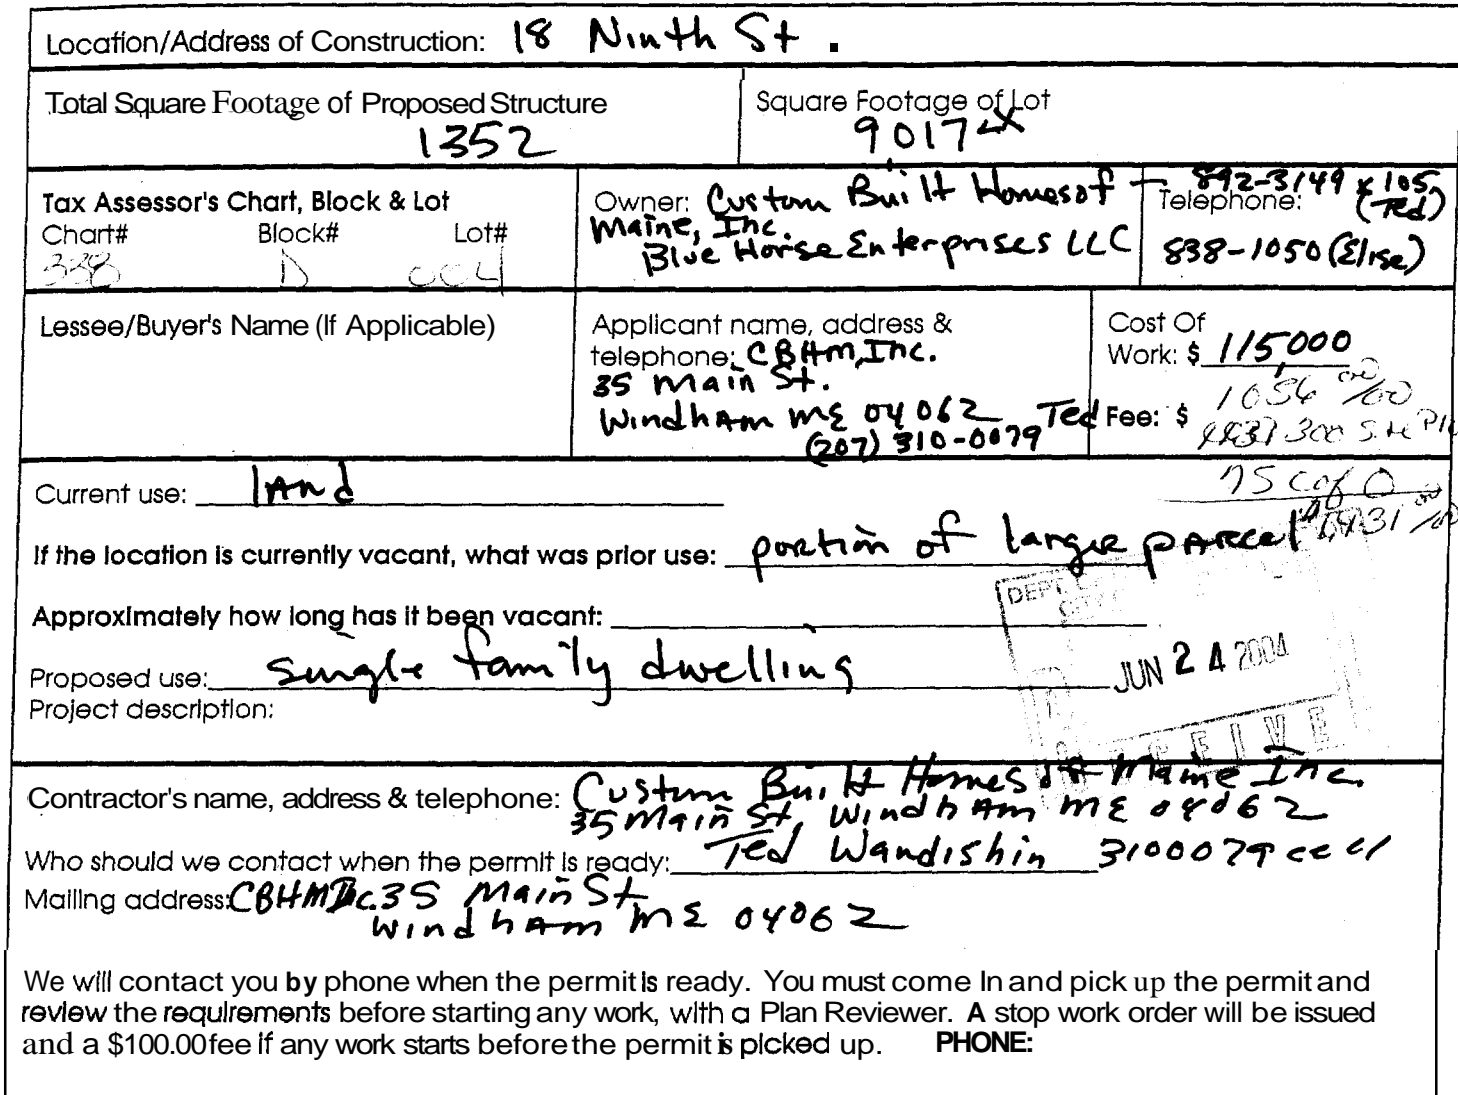 Location/Address of Construction: 18 Ninth St.
Total Square Footage of Proposed Structure
1352
Square Footage of Lot
9017
Tax Assessor's Chart, Block & Lot
Chart# Block# Lot#
338 D 004
Owner: Custom Built Homes of
Maine, Inc.
Blue Horse Enterprises LLC
892-3149 x105
Telephone: (Ted)
838-1050 (Elise)
Lessee/Buyer's Name (If Applicable)
Applicant name, address &
telephone: CBHM, Inc.
35 Main St.
Windham ME 04062 Ted
(207) 310-0079
Cost Of
Work: $ 115,000
1056 00/00
Fee: $ 300 Site
75 C of O
Current use: land
If the location is currently vacant, what was prior use: portion of larger parcel
Approximately how long has it been vacant:
Proposed use: single family dwelling
Project description:
DEPT.
CITY
JUN 24 2004
RECEIVE
Contractor's name, address & telephone: Custom Built Homes of Maine Inc.
35 Main St, Windham ME 04062
Who should we contact when the permit is ready: Ted Wandishin 3100079 cell
Mailing address: CBHM Inc. 35 Main St
Windham ME 04062
We will contact you by phone when the permit is ready. You must come In and pick up the permit and
review the requirements before starting any work, with a Plan Reviewer. A stop work order will be issued
and a $100.00 fee if any work starts before the permit is picked up. PHONE: